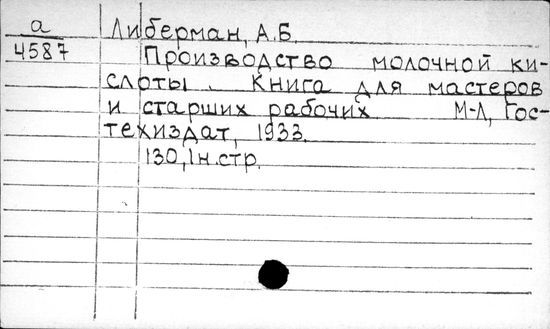 а Либерман, А.Б.
4587 Производство молочной ки-
слоты. Книга для мастеров
и старших рабочих М-Л, Гос-
техиздат, 1933.
130, 1н.стр.